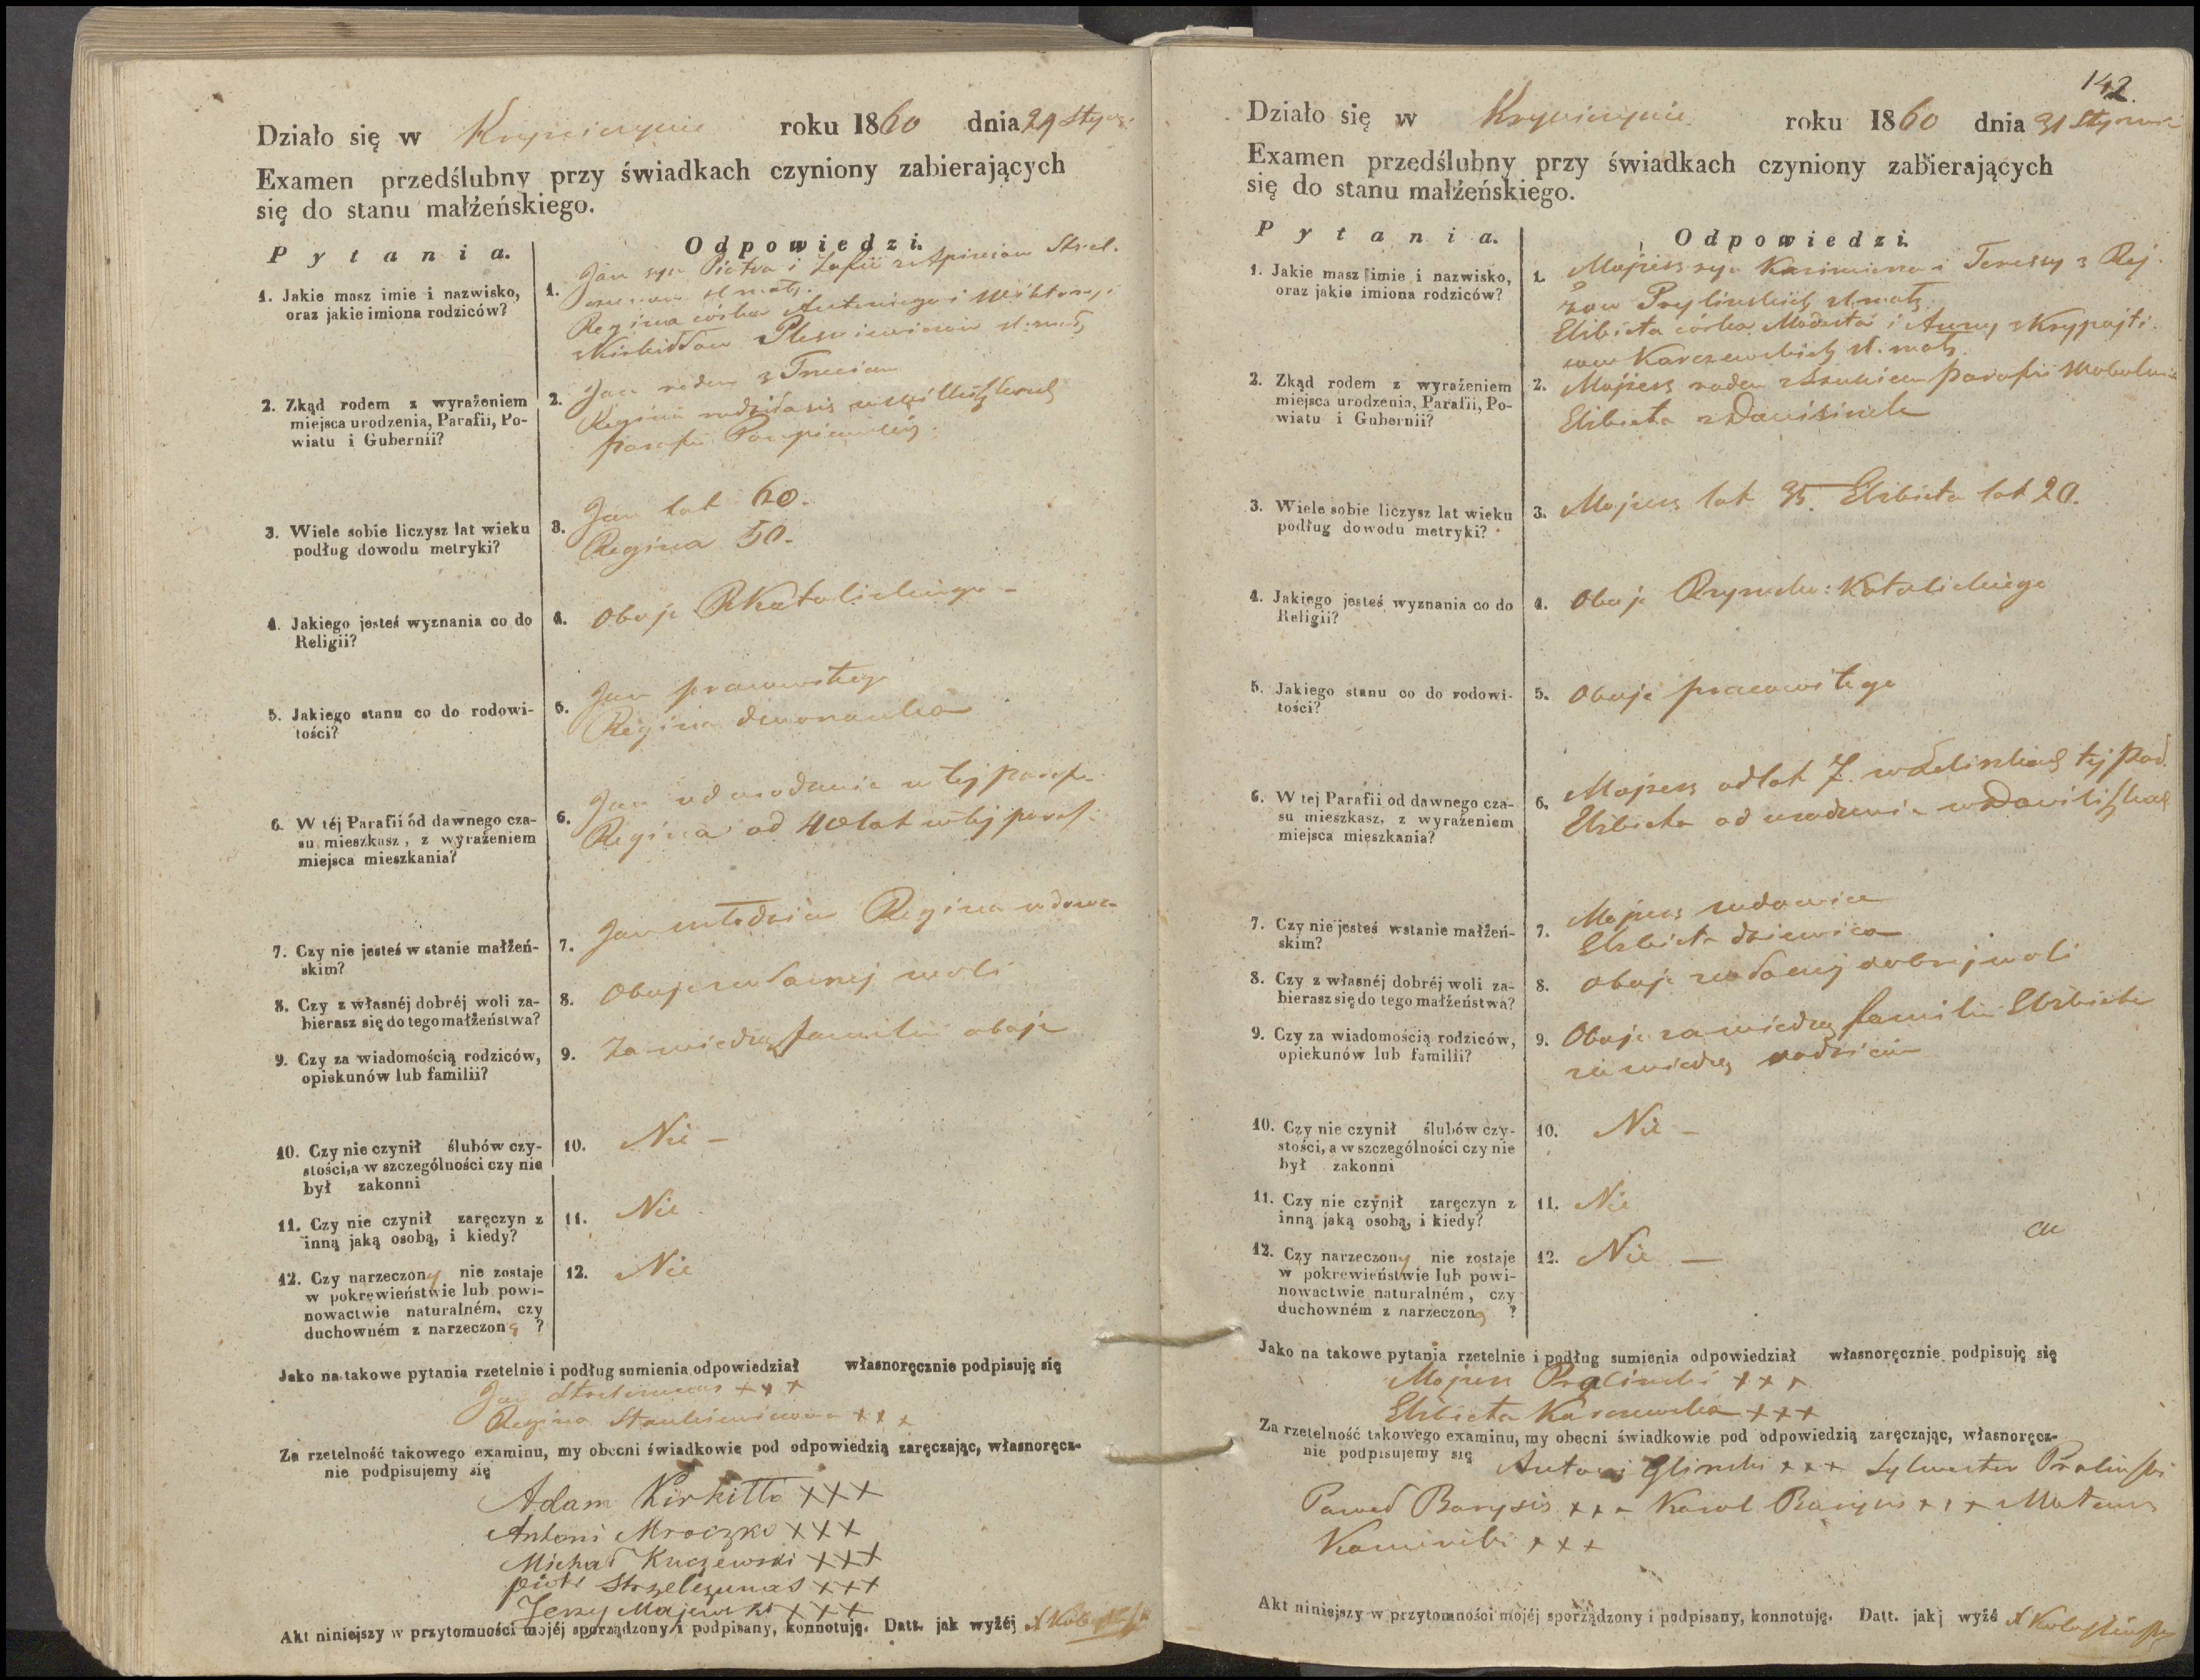 Działo się w roku 1860 dnia 29
Examen przedślubny przy świadkach czyniony zabierających
się do stanu małżeńskiego.
Pytania. Odpowiedzi.
1. Jakie masz imie i nazwisko,
oraz jakie imiona rodziców?
1. Jan syn Piotra i Zofii
Regina córka Antoniego i Wiktoryi
2. Zkąd rodem z wyrażeniem
miejsca urodzenia, Parafii, Po-
wiatu i Gubernii?
2. Jan rodem z
Regina
3. Wiele sobie liczysz lat wieku
podług dowodu metryki?
3. Jan lat 60.
Regina 50.
4. Jakiego jesteś wyznania co do
Religii?
4. Oboje RKatolickiego
5. Jakiego stanu co do rodowi-
tości?
5. Jan pracowitego
Regina dworanka
6. W téj Parafii od dawnego cza-
su mieszkasz, z wyrażeniem
miejsca mieszkania?
6. Jan od urodzenia w tej paraf.
Regina od 40 lat w tej paraf.
7. Czy nie jesteś w stanie małżeń-
skim?
7. Jan młodzian Regina wdowa
8. Czy z własnéj dobréj woli za-
bierasz się do tego małżeństwa?
8. Oboje z własnej woli
9. Czy za wiadomością rodziców,
opiekunów lub familii?
9. Za wiedzą familii oboje
10. Czy nie czynił ślubów czy-
stości, a w szczególności czy nie
był zakonni
10. Nie –
11. Czy nie czynił zaręczyn z
inną jaką osobą, i kiedy?
11. Nie
12. Czy narzeczony nie zostaje
w pokrewieństwie lub powi-
nowactwie naturalném, czy
duchowném z narzeczoną ?
12. Nie
Jako na takowe pytania rzetelnie i podług sumienia odpowiedział własnoręcznie podpisuję się
Jan +++
Regina Stankiewiczowa +++
Za rzetelność takowego examinu, my obecni świadkowie pod odpowiedzią zaręczając, własnoręcz-
nie podpisujemy się
Adam Kirkiłło +++
Antoni Mroczko +++
Michał Kuczewski +++
piotr Strzelczunas +++
Jerzy Majewski +++
Akt niniejszy w przytomności mojéj sporządzony i podpisany, konnotuję. Datt. jak wyżéj
142.
Działo się w roku 1860 dnia 31
Examen przedślubny przy świadkach czyniony zabierających
się do stanu małżeńskiego.
Pytania. Odpowiedzi.
1. Jakie masz imie i nazwisko,
oraz jakie imiona rodziców?
1. Mojżesz syn Kazimierza i Teresy z
Elżbieta córka Modesta i Anny z
Karczewskich
2. Zkąd rodem z wyrażeniem
miejsca urodzenia, Parafii, Po-
wiatu i Gubernii?
2. Mojżesz rodem parafii
Elżbieta z
3. Wiele sobie liczysz lat wieku
podług dowodu metryki?
3. Mojżesz lat 35. Elżbieta lat 20.
4. Jakiego jesteś wyznania co do
Religii?
4. Oboje Rzymsko: Katolickiego
5. Jakiego stanu co do rodowi-
tości?
5. Oboje pracowitego
6. W tej Parafii od dawnego cza-
su mieszkasz, z wyrażeniem
miejsca mieszkania?
6. Mojżesz od lat 7. tej par.
Elżbieta od urodzenia
7. Czy nie jesteś w stanie małżeń-
skim?
7. Mojżesz wdowiec
Elżbieta dziewica
8. Czy z własnéj dobréj woli za-
bierasz się do tego małżeństwa?
8. Oboje z własnej dobrej woli
9. Czy za wiadomością rodziców,
opiekunów lub familii?
9. Oboje za wiedzą familii Elżbieta
za wiedzą rodziców
10. Czy nie czynił ślubów czy-
stości, a w szczególności czy nie
był zakonni
10. Nie –
11. Czy nie czynił zaręczyn z
inną jaką osobą, i kiedy?
11. Nie
12. Czy narzeczony nie zostaje
w pokrewieństwie lub powi-
nowactwie naturalném, czy
duchowném z narzeczoną ?
12. Nie –
Jako na takowe pytania rzetelnie i podług sumienia odpowiedział własnoręcznie podpisuję się
Mojżesz +++
Elżbieta Karczewska +++
Za rzetelność takowego examinu, my obecni świadkowie pod odpowiedzią zaręczając, własnoręcz-
nie podpisujemy się Antoni Gliński +++ Sylwester
Paweł Barysis +++ Karol +++ Mateusz
Kamiński +++
Akt niniejszy w przytomności mojéj sporządzony i podpisany, konnotuję. Datt. jakj wyżé